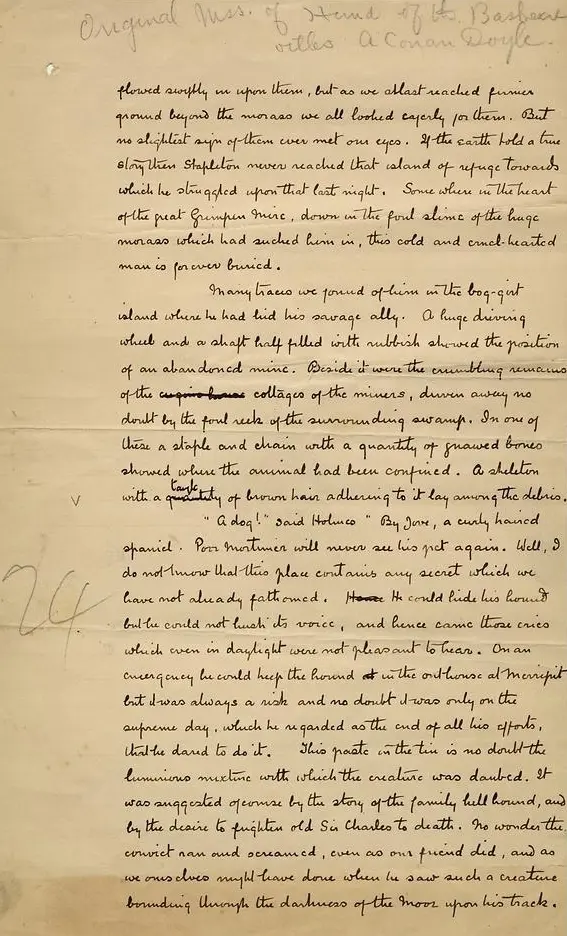 Original Mss. of Hound of the Baskervilles
A Conan Doyle.
flowed swiftly in upon them, but as we at last reached firmer
ground beyond the morass we all looked eagerly for them. But
no slightest sign of them ever met our eyes. If the earth told a true
story then Stapleton never reached that island of refuge towards
which he struggled upon that last night. Somewhere in the heart
of the great Grimpen Mire, down in the foul slime of the huge
morass which had sucked him in, this cold and cruel-hearted
man is for ever buried.
Many traces we found of him in the bog-girt
island where he had hid his savage ally. A huge driving
wheel and a shaft half filled with rubbish showed the position
of an abandoned mine. Beside it were the crumbling remains
of the engine house cottages of the miners, driven away no
doubt by the foul reek of the surrounding swamp. In one of
these a staple and chain with a quantity of gnawed bones
showed where the animal had been confined. A skeleton
tangle
with a quantity of brown hair adhering to it lay among the debris.
V
"A dog!" said Holmes "By Jove, a curly haired
spaniel. Poor Mortimer will never see his pet again. Well, I
do not know that this place contains any secret which we
24
have not already fathomed. Hence He could hide his hound
but he could not hush its voice, and hence came those cries
which even in daylight were not pleasant to hear. On an
emergency he could keep the hound at in the outhouse at Merripit
but it was always a risk and no doubt it was only on the
supreme day, which he regarded as the end of all his efforts,
that he dared to do it. This paste in the tin is no doubt the
luminous mixture with which the creature was daubed. It
was suggested of course by the story of the family hell hound, and
by the desire to frighten old Sir Charles to death. No wonder the
convict ran and screamed, even as our friend did, and as
we ourselves might have done when he saw such a creature
bounding through the darkness of the Moor upon his track.